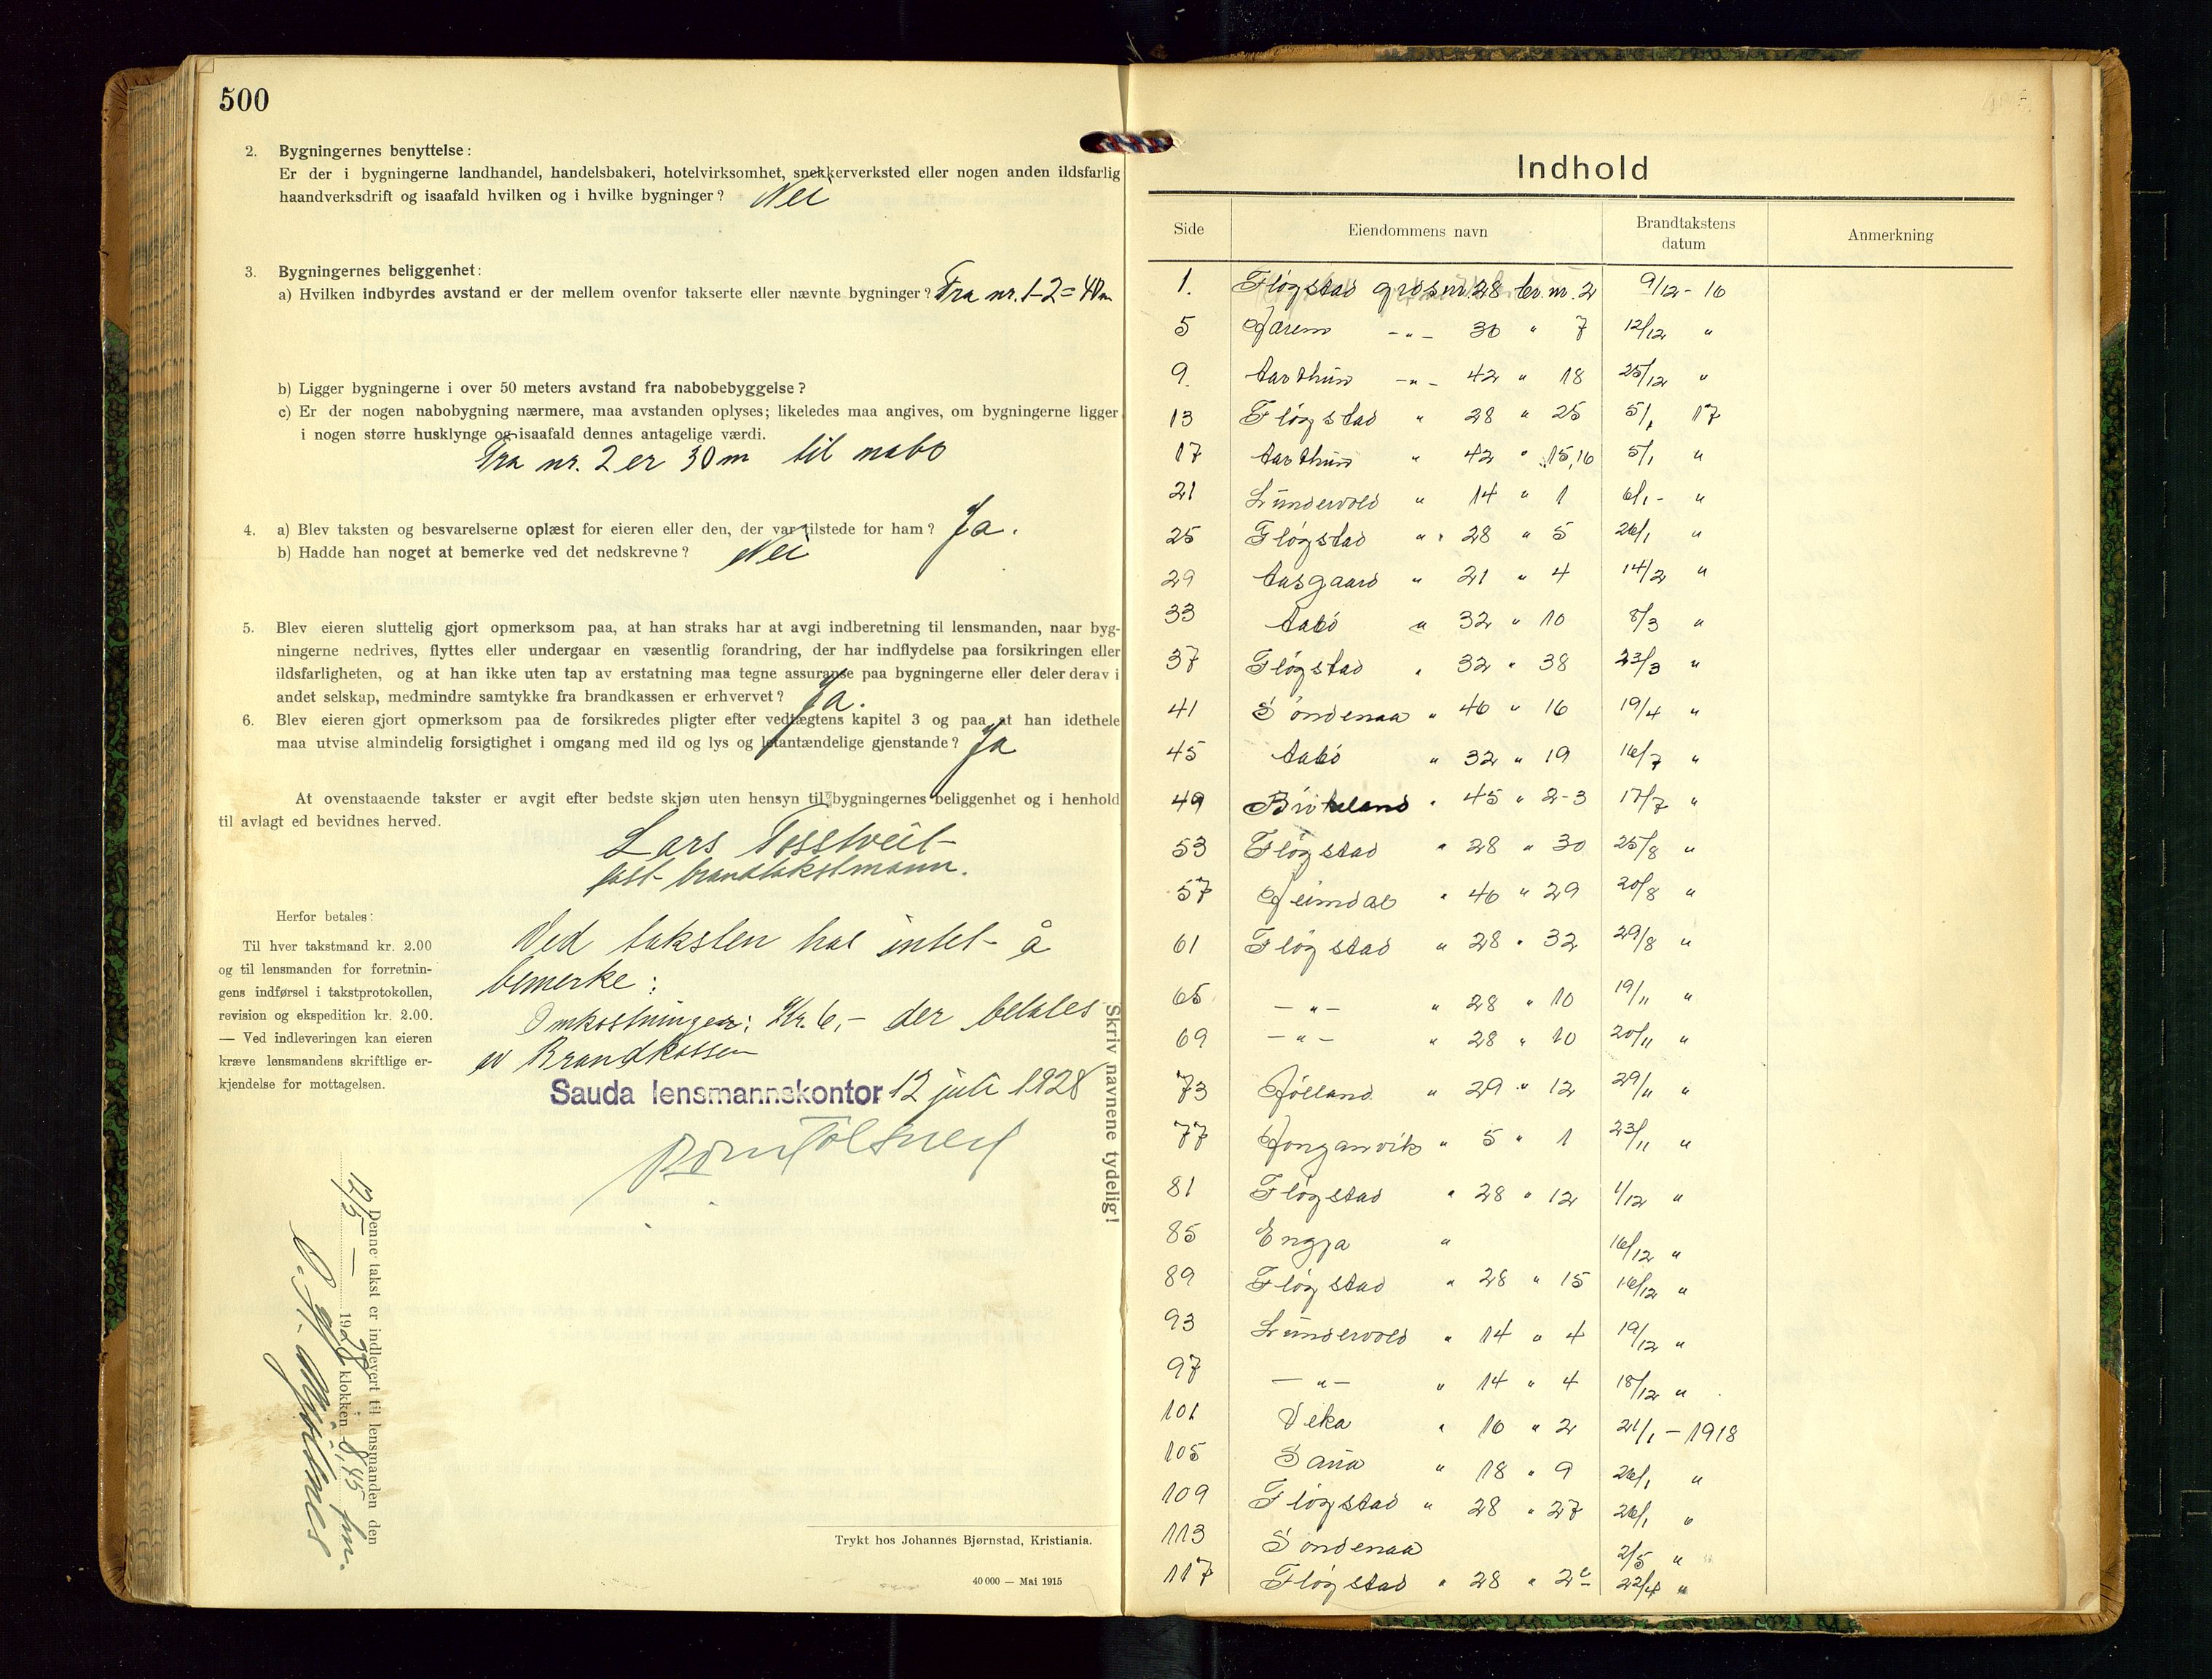 500
2. Bygningernes benyttelse:
Er der i bygningerne landhandel, handelsbakeri, hotelvirksomhet, snekkerverksted eller nogen anden ildsfarlig
haandverksdrift og isaafald hvilken og i hvilke bygninger? Nei
3. Bygningernes beliggenhet:
a) Hvilken indbyrdes avstand er der mellem ovenfor takserte eller nævnte bygninger? Fra nr. 1-2 = 40 m
b) Ligger bygningerne i over 50 meters avstand fra nabobebyggelse?
c) Er der nogen nabobygning nærmere, maa avstanden oplyses; likeledes maa angives, om bygningerne ligger
i nogen større husklynge og isaafald dennes antagelige værdi.
Fra nr. 2 er 30 m til nabo
4. a) Blev taksten og besvarelserne oplæst for eieren eller den, der var tilstede for ham? Ja.
b) Hadde han noget at bemerke ved det nedskrevne? Nei
5. Blev eieren sluttelig gjort opmerksom paa, at han straks har at avgi indberetning til lensmanden, naar byg-
ningerne nedrives, flyttes eller undergaar en væsentlig forandring, der har indflydelse paa forsikringen eller
ildsfarligheten, og at han ikke uten tap av erstatning maa tegne assuranse paa bygningerne eller deler derav i
andet selskap, medmindre samtykke fra brandkassen er erhvervet? Ja.
6. Blev eieren gjort opmerksom paa de forsikredes pligter efter vedtægtens kapitel 3 og paa, at han idethele
maa utvise almindelig forsigtighet i omgang med ild og lys og letantændelige gjenstande? Ja
At ovenstaaende takster er avgit efter bedste skjøn uten hensyn til bygningernes beliggenhet og i henhold
til avlagt ed bevidnes herved.
Lars Tosstveit
fast brandtakstmann.
Herfor betales:
Til hver takstmand kr. 2.00
og til lensmanden for forretnin-
gens indførsel i takstprotokollen,
revision og ekspedition kr. 2.00.
— Ved indleveringen kan eieren
kræve lensmandens skriftlige er-
kjendelse for mottagelsen.
Ved taksten har intet å
bemerke:
Omkostninger: Kr. 6,- der betales
av Brandkassen
Sauda lensmannskontor 12 juli 1928
Skriv navnene tydelig!
Denne takst er indlevert til lensmanden den
12/5 — 1928 klokken 8,45 fm.
Trykt hos Johannes Bjørnstad, Kristiania.
40 000 — Mai 1915
Indhold
Side Eiendommens navn Brandtakstens datum Anmerkning
1. Fløgstad grdsnr. 28 br. nr. 2 9/12 - 16
5 Jærem -"- 30 " 7 12/12 "
9. Aarthun -"- 42 " 18 25/12 "
13 Fløgstad " 28 " 25 5/1 17
17 Aarthun " 42 " 15,16 5/1 "
21 Lundervold " 14 " 1 6/1 - "
25 Fløgstad " 28 " 5 26/1 "
29 Aasgaard " 21 " 4 14/2 "
33 Aabø " 32 " 10 8/3 "
37 Fløgstad " 32 " 38 23/3 "
41 Søndenaa " 46 " 16 19/4 "
45 Aabø " 32 " 19 16/7 "
49 Birkeland " 45 " 2-3 17/7 "
53 Fløgstad " 28 " 30 25/8 "
57 Heimdal " 46 " 29 20/8 "
61 Fløgstad " 28 " 32 29/8 "
65 -"- " 28 " 10 19/11 "
69 -"- " 28 " 10 20/11 "
73 Hølland " 29 " 12 29/11 "
77 Honganvik " 5 " 1 23/11 "
81 Fløgstad " 28 " 12 1/12 "
85 Engja " 16/12 "
89 Fløgstad " 28 " 15 16/12 "
93 Lundervold " 14 " 4 19/12 "
97 -"- " 14 " 4 18/12 "
101 Veka " 16 " 2 21/1 - 1918
105 Sauda " 18 " 9 26/1 "
109 Fløgstad " 28 " 27 26/1 "
113 Søndenaa 2/5 "
117 Fløgstad " 28 " 22/4 "